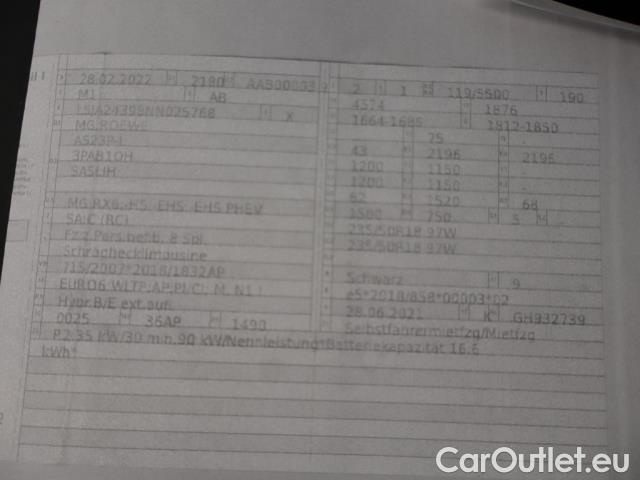 28.02.2022 2180 AAB00003
M1 AB
LSJA24399NN025768 X
MG ROEWE
AS23P-L
3PAB1OH
SA5LIH
MG RX6; -HS; -EHS; -EHS PHEV
SAIC (RC)
Fz.z.Pers.bef.b. 8 Spl.
Schrägheckllimousine
715/2007*2018/1832AP
EURO6 WLTP;AP;PI/CI; M, N1 I
Hybr.B/E ext.aufl.
0025 36AP 1490
P.2:35 kW/30 min.90 kW/Nennleistung*Batteriekapazität 16,6
kWh*
2 1 119/5500 190
4574 1876
1664-1685 1812-1850
75
43 2196 2196
1200 1150
1200 1150
62 1520 68
1500 750 5
235/50R18 97W
235/50R18 97W
Schwarz 9
e5*2018/858*00003*02
28.06.2021 K GH932739
Selbstfahrermietfzg/Mietfzg
CarOutlet.eu